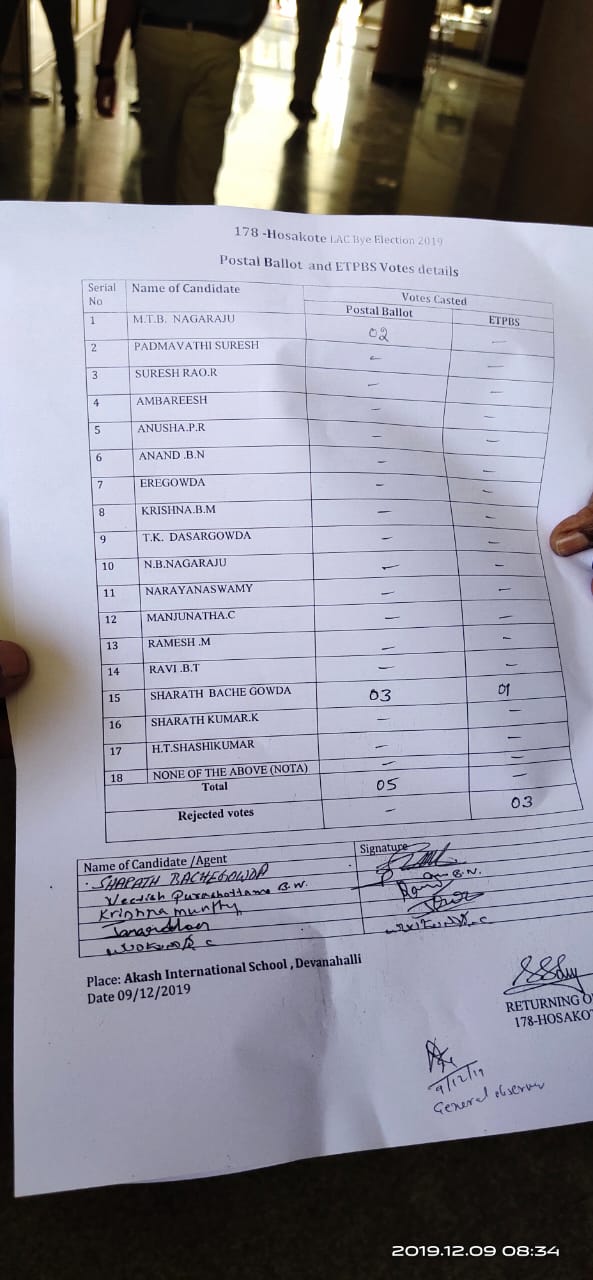 178 -Hosakote LAC Bye Election 2019
Postal Ballot and ETPBS Votes details
Serial No Name of Candidate Votes Casted
Postal Ballot ETPBS
1 M.T.B. NAGARAJU 02 —
2 PADMAVATHI SURESH — —
3 SURESH RAO.R — —
4 AMBAREESH — —
5 ANUSHA.P.R — —
6 ANAND .B.N — —
7 EREGOWDA — —
8 KRISHNA.B.M — —
9 T.K. DASARGOWDA — —
10 N.B.NAGARAJU — —
11 NARAYANASWAMY — —
12 MANJUNATHA.C — —
13 RAMESH .M — —
14 RAVI .B.T — —
15 SHARATH BACHE GOWDA 03 01
16 SHARATH KUMAR.K — —
17 H.T.SHASHIKUMAR — —
18 NONE OF THE ABOVE (NOTA) — —
Total 05 —
Rejected votes — 03
Name of Candidate /Agent Signature
SHARATH BACHEGOWDA
Purushothama B.N. B.N.
Krishna murthy
Janardhan
Place: Akash International School , Devanahalli
Date 09/12/2019
RETURNING O
178-HOSAKOT
9/12/19
General observer
2019.12.09 08:34